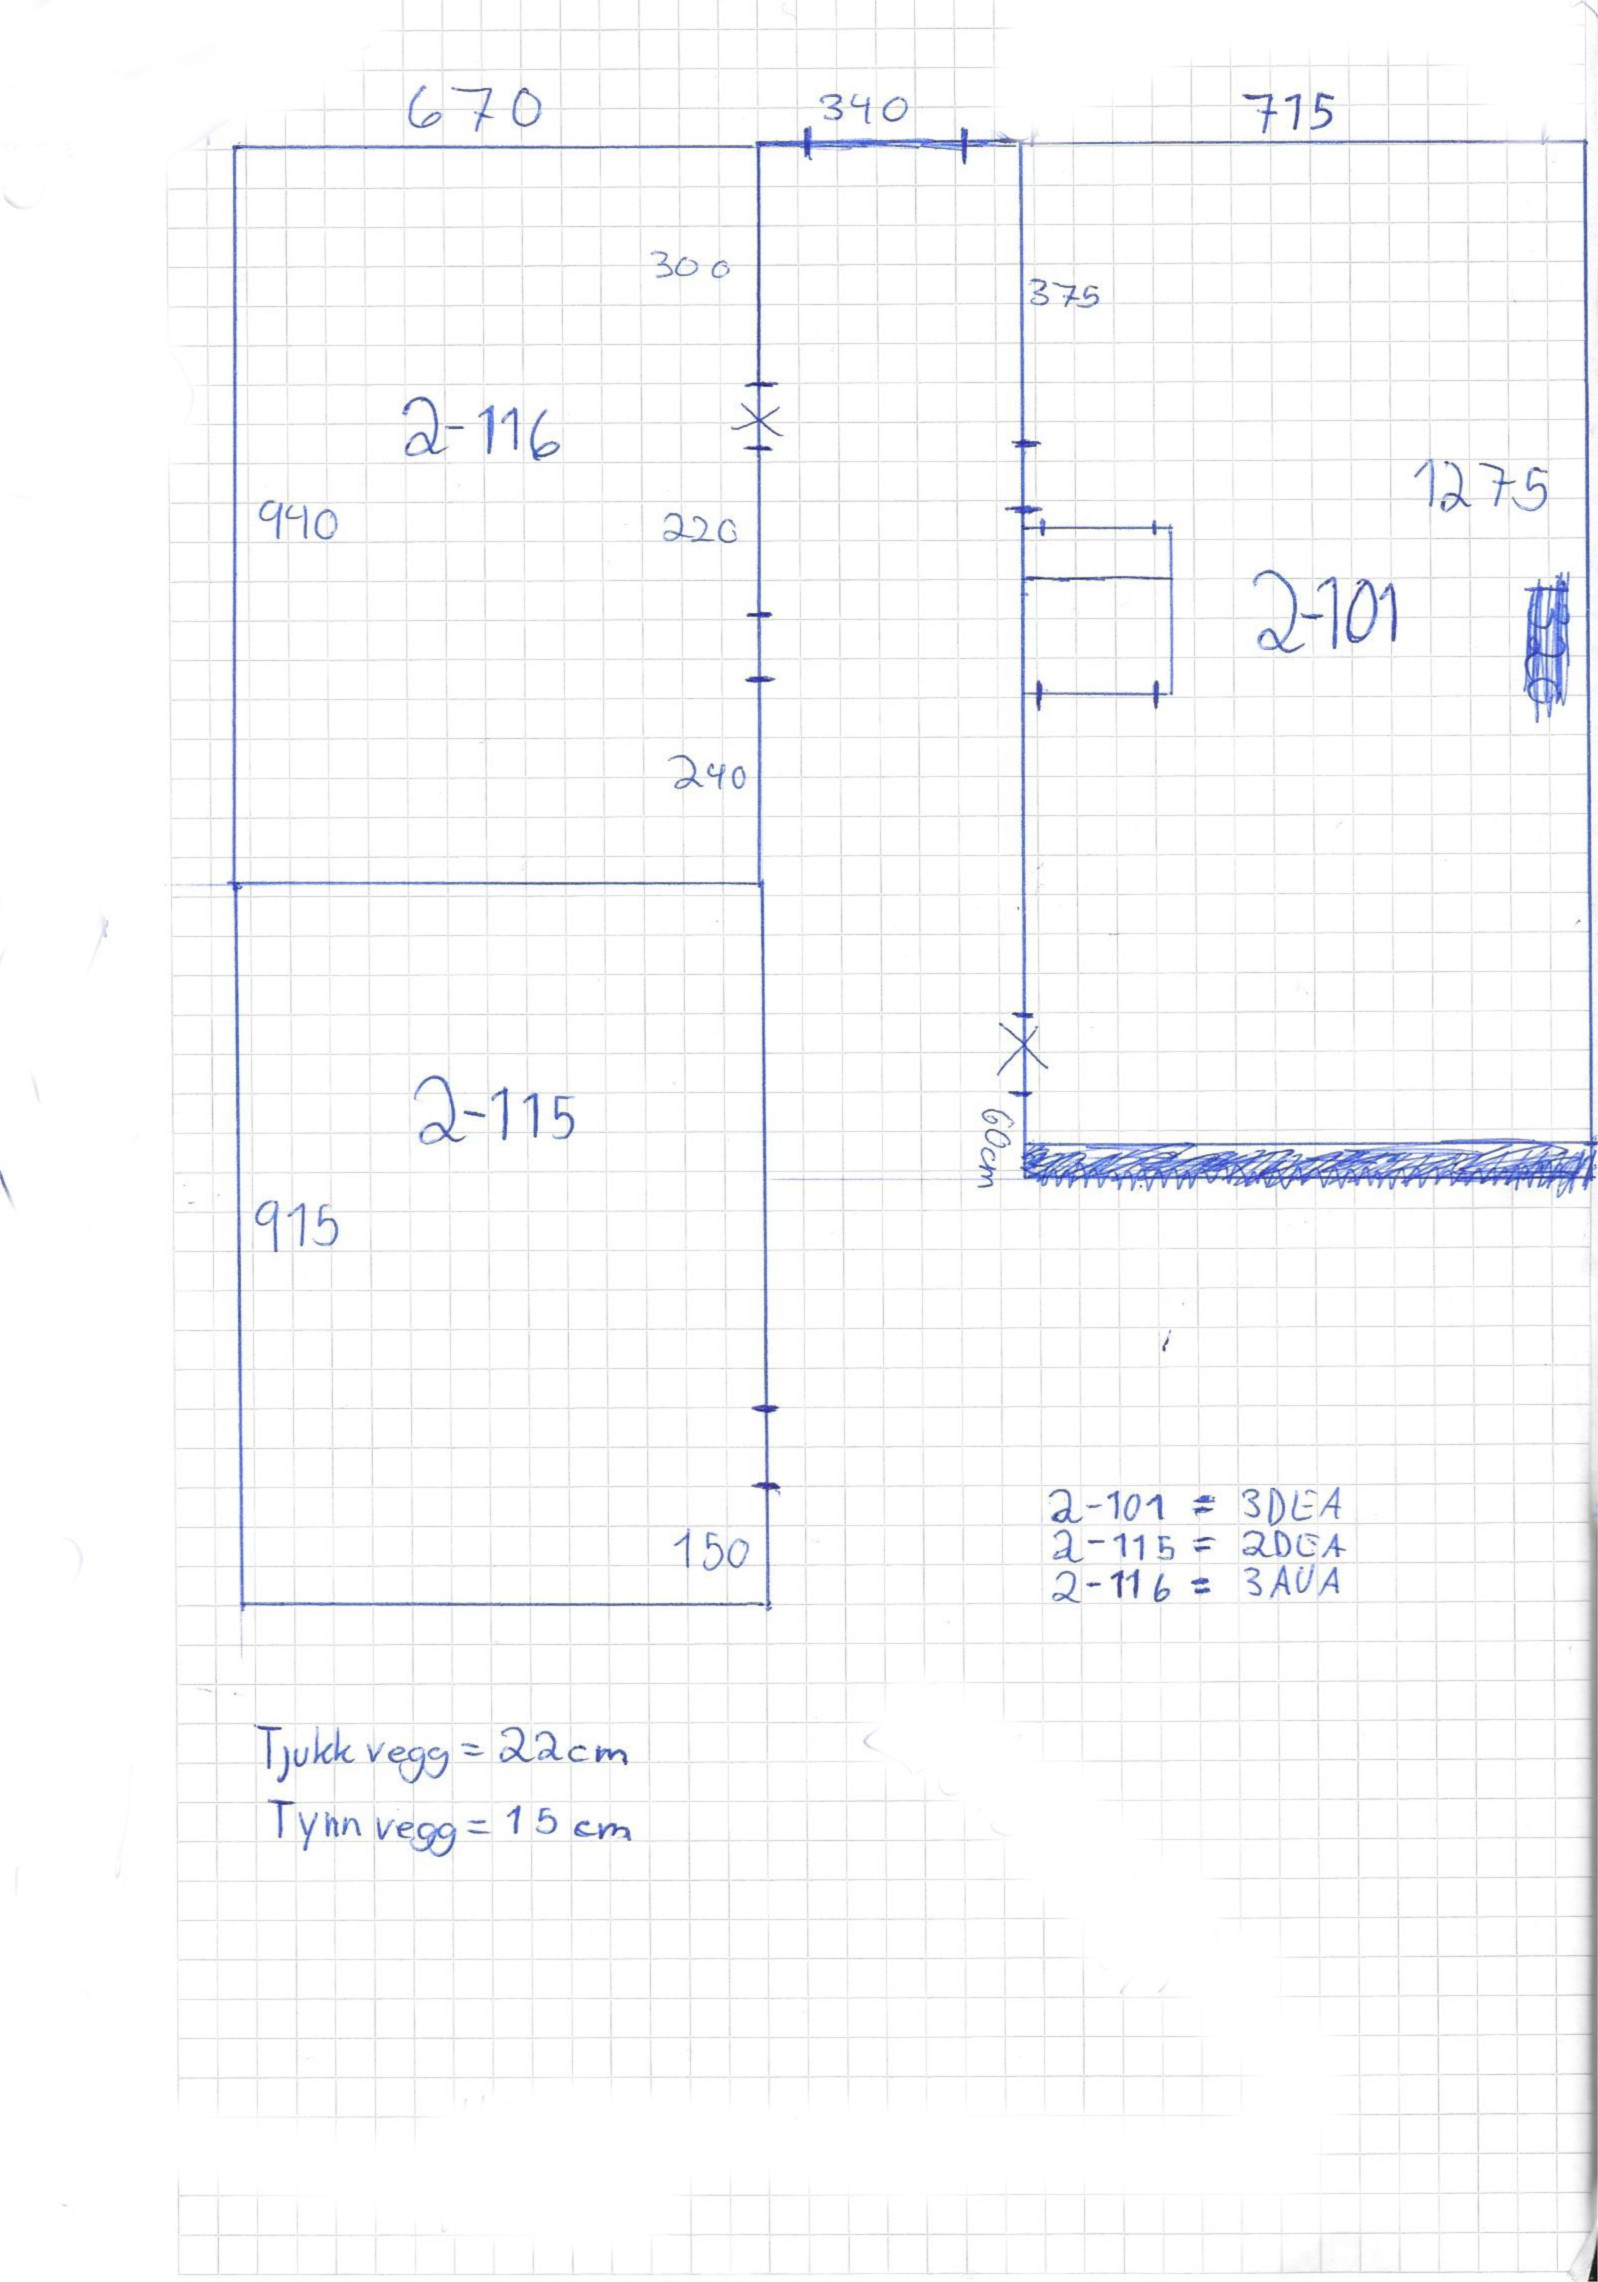 670 340 715
300
375
2-116
1275
940
220
2-101
240
2-115
60cm
915
2-101 = 3DEA
150
2-115 = 2DEA
2-116 = 3AUA
Tjukk vegg = 22cm
Tynn vegg = 15 cm